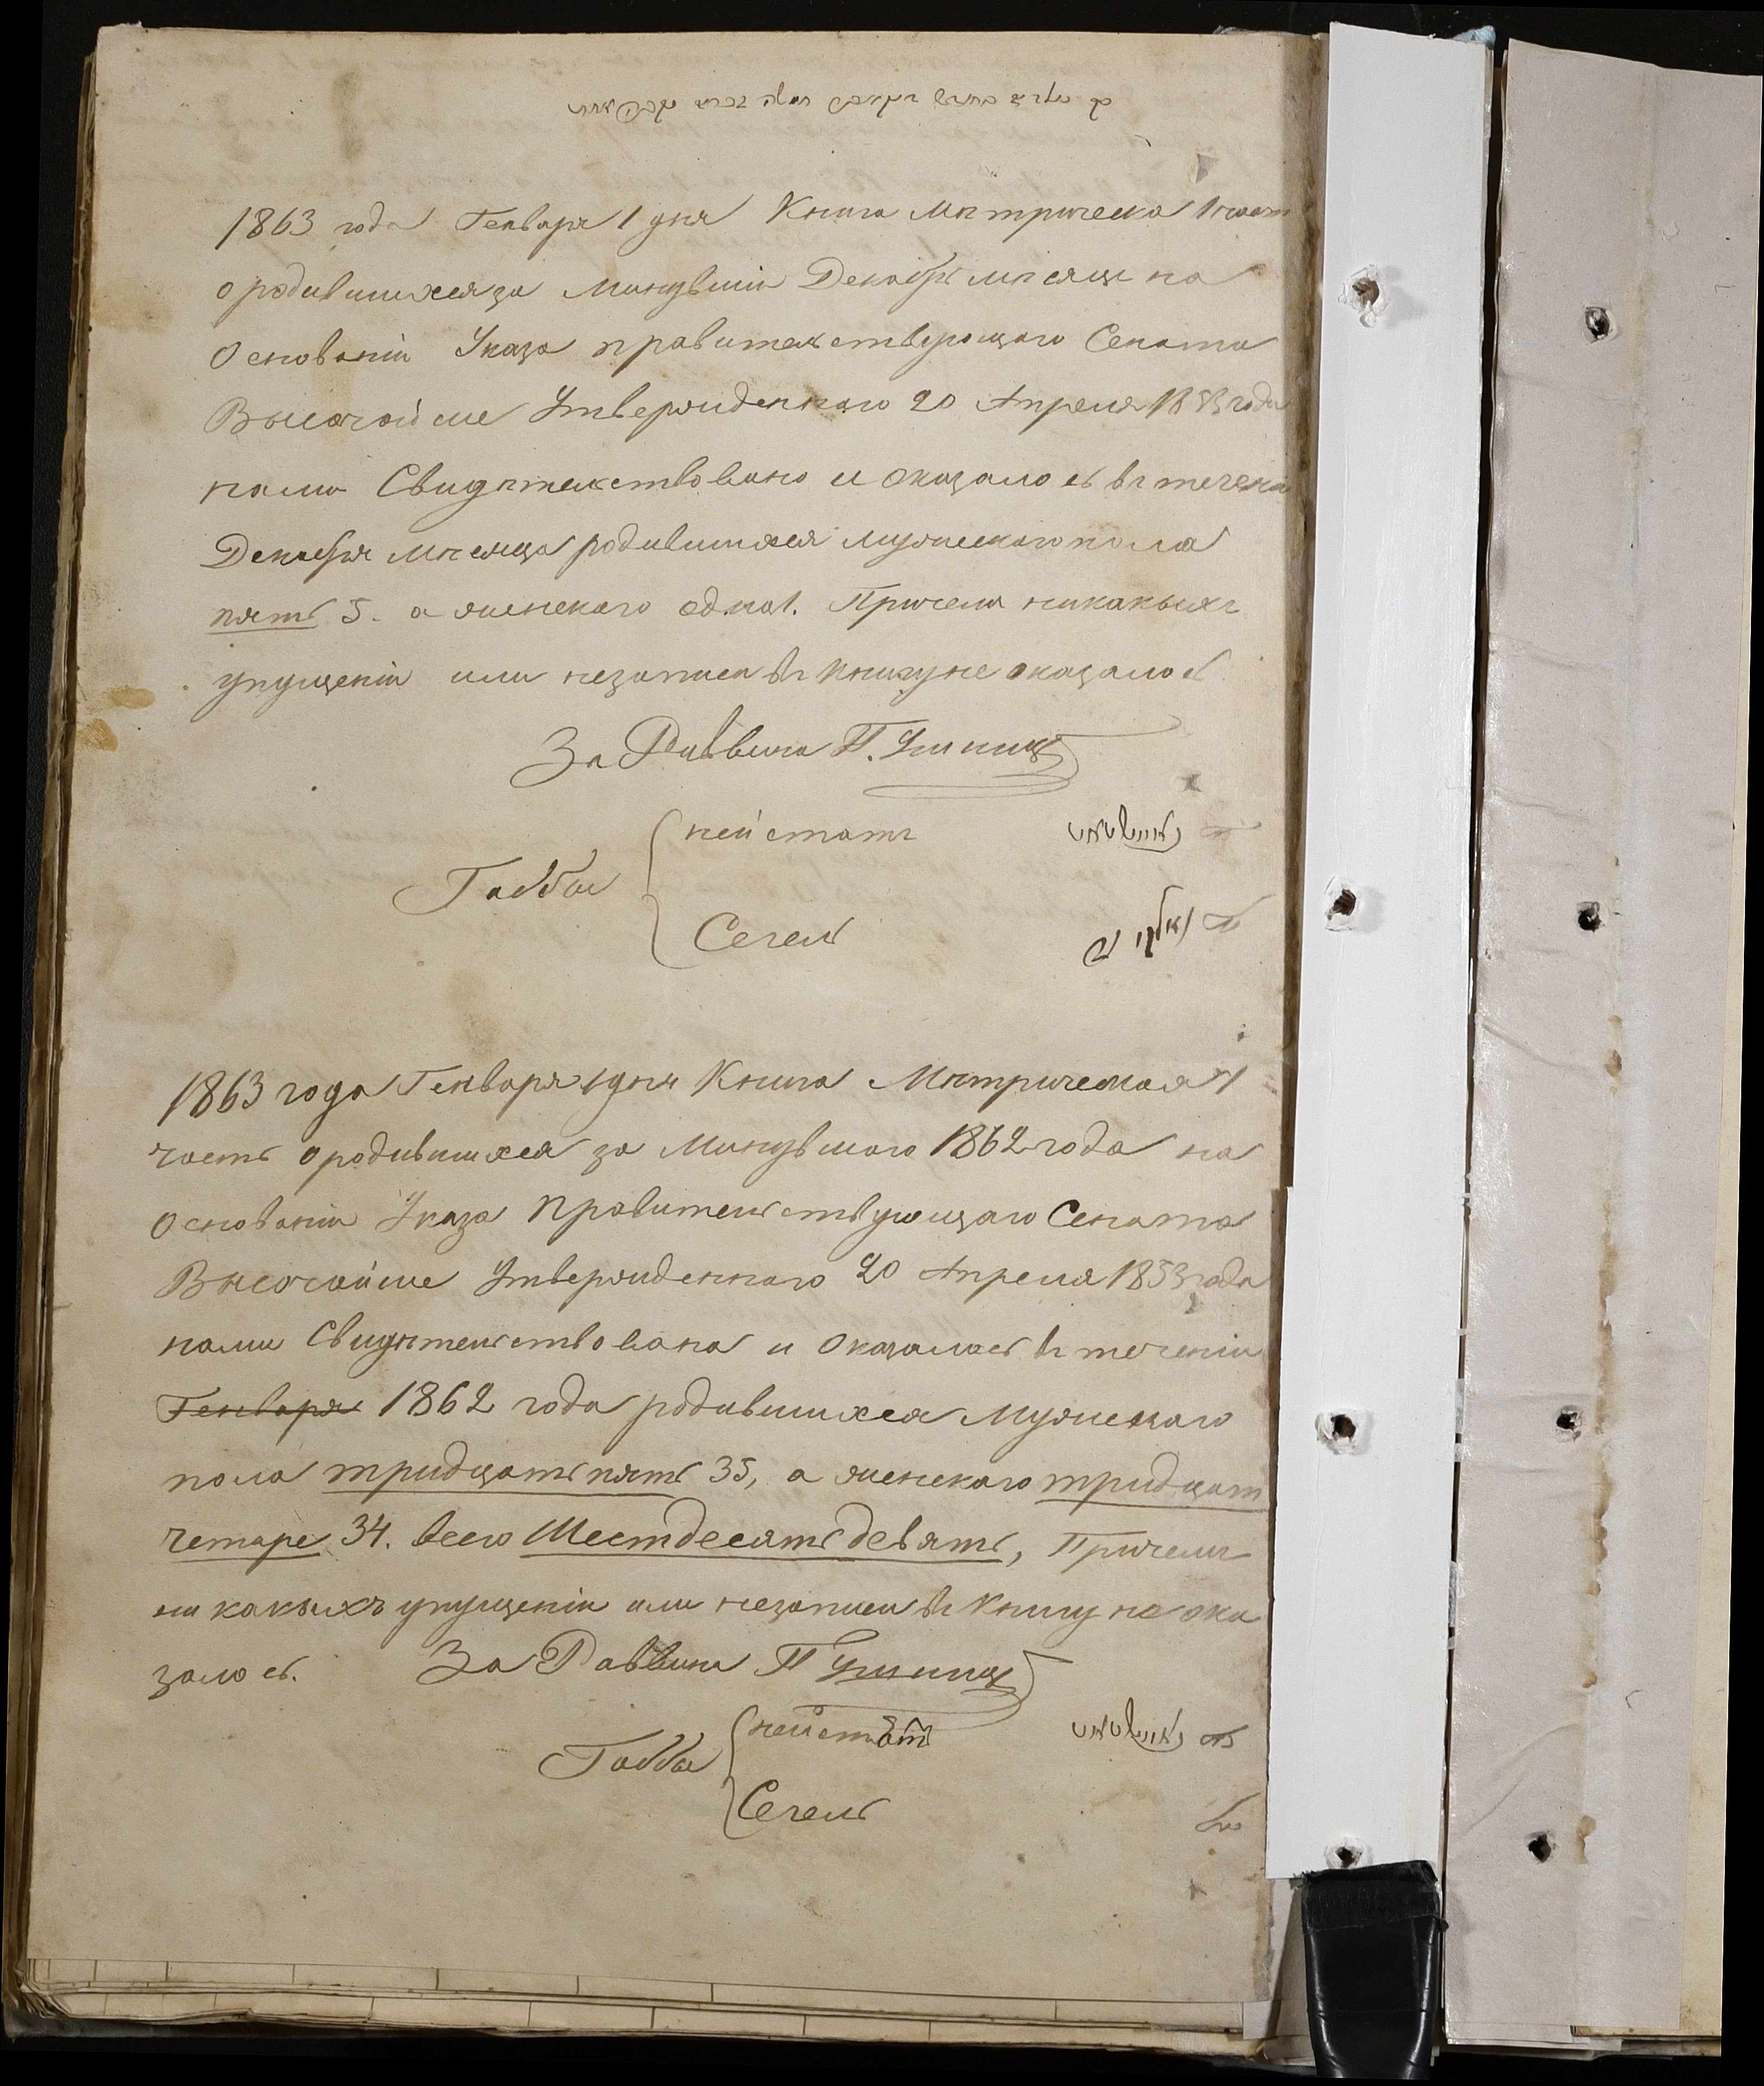 1863 года Генваря 1 дня Книга Мѣтрическа 1 част
о родившихся за минувшіи Декабрь мѣсяць на
Основаніи Указа правительствующаго Сената
Высочайше Утвержденнаго 20 Апреля 1853 года
нами Свидѣтельствовано и оказалось въ течени
Декабря мѣсяца родившихся мужескаго пола
пять 5. а женскаго одна 1. Причем никакыхъ
упущеніи или незаписи въ книгу не оказалось
За Раввина П.
Габбаи
нейстатъ
Сегель
1863 года Генваря 1 дня Книга Мѣтрическая 1
часть о родившихся за Минувшаго 1862 года на
Основаніи Указа Правительствующаго Сената
Высочайше Утвержденнаго 20 Апреля 1853 года
нами Свидѣтельствована и Оказалась въ теченіи
Генваря 1862 года родившихся Мужескаго
пола тридцать пять 35, а женскаго тридцат
четаре 34. всего Шестдесять девять, Причем
ни какыхъ упущеніи или незаписи въ Книгу не ока
залось. За Раввина П
Габбаи
нейстат
Сегель